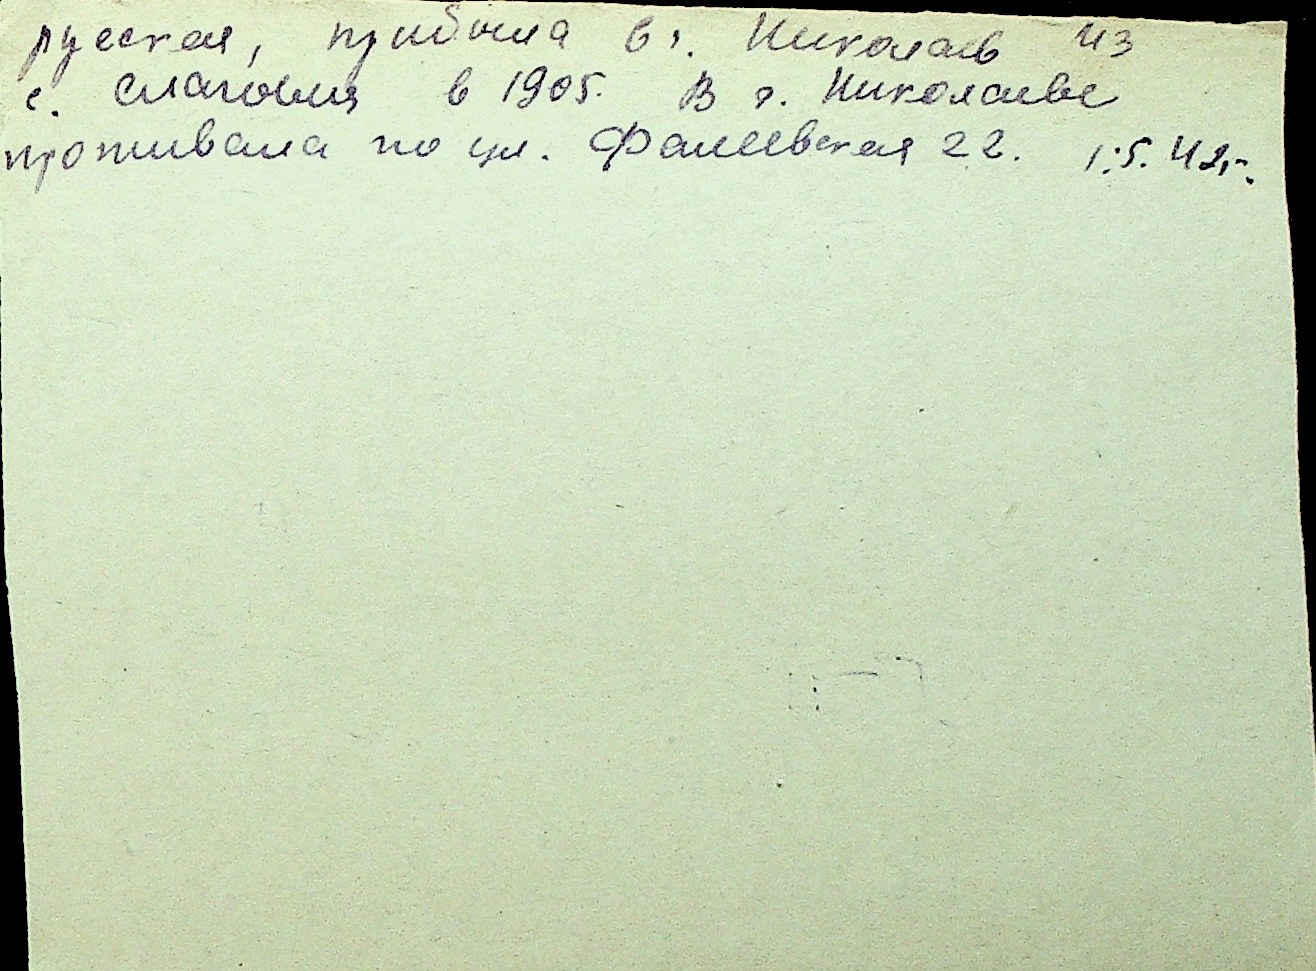 русская, прибыла в г. Николаев из
с. в 1905. В г. Николаеве
проживала по ул. Фалеевская 22. 1.5.42,-.